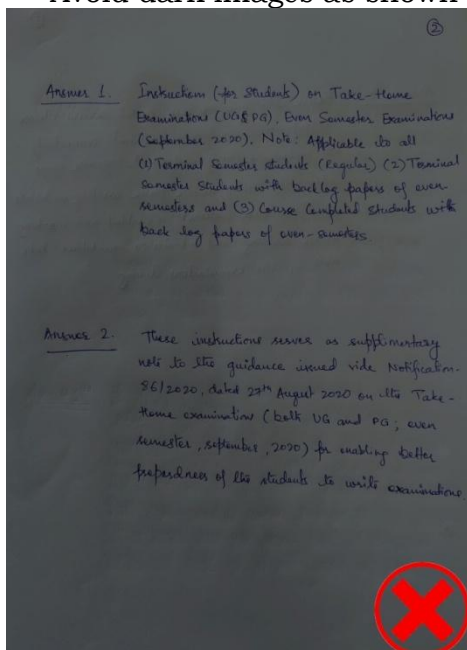 Avoid dark images as shown
2
Answer 1. Instructions (for Students) on Take-Home
Examinations (UG & PG), Even Semester Examinations
(September 2020). Note: Applicable to all
(1) Terminal Semester students (Regular) (2) Terminal
Semester Students with backlog papers of even-
semesters and (3) Course Completed Students with
back log papers of even-semesters.
Answer 2. These instructions serves as supplimentary
note to the guidance issued vide Notification-
86/2020, dated 27th August 2020 on the Take-
Home examination (both UG and PG; even
semester, september, 2020) for enabling better
preparedness of the students to write examinations.